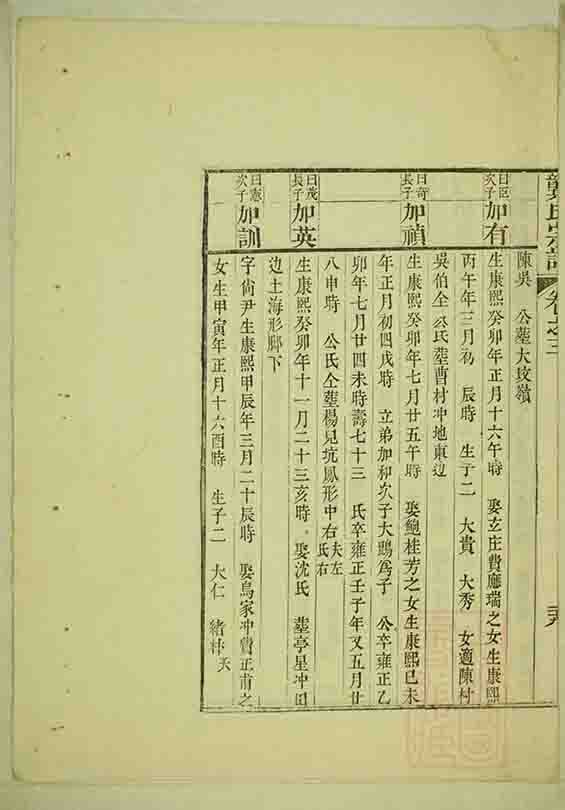 龔氏宗譜 卷之三
陳吳 公塟大坟嶺
曰臣次子 加有 生康熙癸卯年正月十六午時 娶玄庄費應瑞之女生康熙
丙午年三月初 辰時 生子二 大貴 大秀 女適陳村
吳伯全 公氏塟曹村冲地東边
曰奇長子 加禎 生康熙癸卯年七月廿五午時 娶鮑桂芳之女生康熙己未
年正月初四戌時 立弟加和次子大鵾為子 公卒雍正乙
卯年七月廿四未時壽七十三 氏卒雍正壬子年又五月廿
八申時 公氏仝塟楊兒坑鳳形中右 夫左氏右
曰茂長子 加英 生康熙癸卯年十一月二十三亥時 娶沈氏 塟亭星冲田
边土海形脚下
曰憲次子 加訓 字尙尹生康熙甲辰年三月二十辰時 娶鳥家冲費正甫之
女生甲寅年正月十六酉時 生子二 大仁 緒 夭